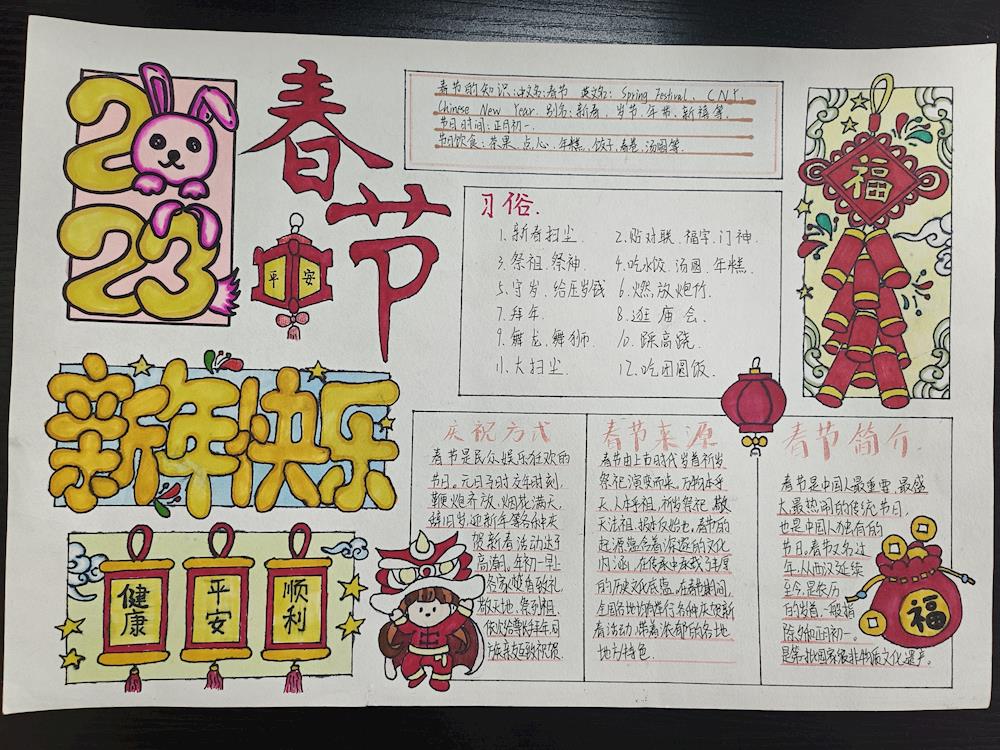 2023
春节
平安
春节的知识:中文名:春节 英文名: Spring Festival、C.N.Y.
Chinese New Year. 别名:新春、岁节、年节、新禧等.
节日时间:正月初一.
节日饮食:茶果、点心、年糕、饺子、春卷、汤圆等.
习俗.
1.新春扫尘.
2.贴对联、福字、门神.
3.祭祖、祭神.
4.吃水饺、汤圆、年糕.
5.守岁、给压岁钱
6.燃放炮竹.
7.拜年.
8.逛庙会.
9.舞龙、舞狮.
10.踩高跷.
11.大扫尘.
12.吃团圆饭.
福
新年快乐
健康
平安
顺利
庆祝方式
春节是民众娱乐狂欢的
节日。元日子时交年时刻,
鞭炮齐放、烟花满天、
辞旧岁、迎新年等各种庆
贺新春活动达于
高潮。年初一早上
各家
敬天地、祭列祖、
依次给尊长拜年,同
族亲友互致祝贺.
春节来源
春节由上古时代岁首祈岁
祭祀演变而来。万物本乎
天、人本乎祖,祈岁祭祀、敬
天法祖,报本反始也。春节的
起源蕴含着深邃的文化
内涵,在传承中承载了丰厚
的历史文化底蕴。在春节期间,
全国各地均有举行各种庆贺新
春活动,带着浓郁的各地
地方特色.
春节简介
春节是中国人最重要、最盛
大最热闹的传统节日,
也是中国人独有的
节日。春节又名过
年。从西汉延续
至今,是农历
的岁首,一般指
除夕和正月初一。
是第一批国家级非物质文化遗产。
福